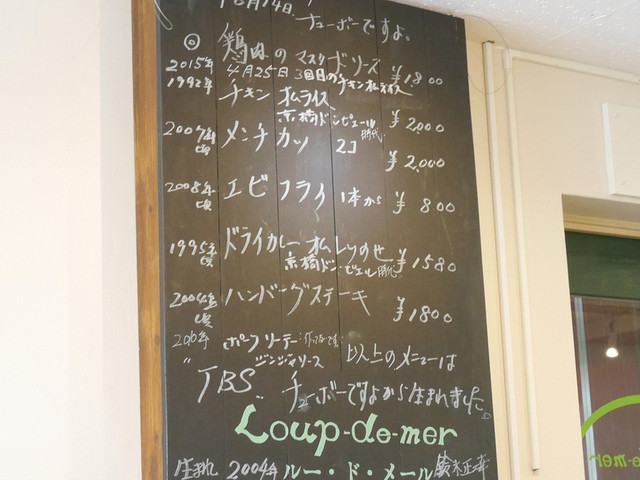 チューボーですよ。
◎ 鶏肉のマスタードソース ¥1800
2015年 4月25日 3回目のチキンオムライス
1992年 チキン オムライス ¥2,000
京橋ドン・ピエール時代
2007年頃 メンチカツ 2コ ¥2,000
2008年頃 エビフライ 1本から ¥800
1995年頃 ドライカレーオムレツのせ ¥1580
京橋ドン・ピエル時代
2004年頃 ハンバーグステーキ ¥1800
ポークソーテー
ジンジャソース
以上のメニューは
"TBS" チューボーですよから生まれました。
Loup-de-mer
生まれ 2004年 ルー・ド・メール 鈴木正幸